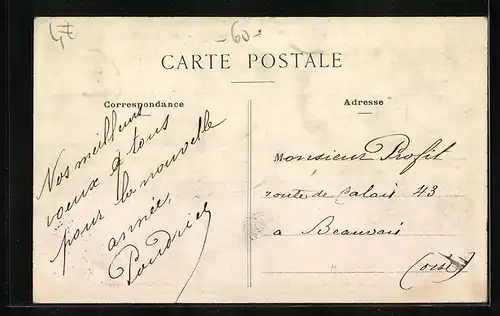 60
CARTE POSTALE
Correspondance
Nos meilleurs
voeux à tous
pour la nouvelle
année,
Adresse
Monsieur Profit
route de Calais 43
a Beauvais
(oise)